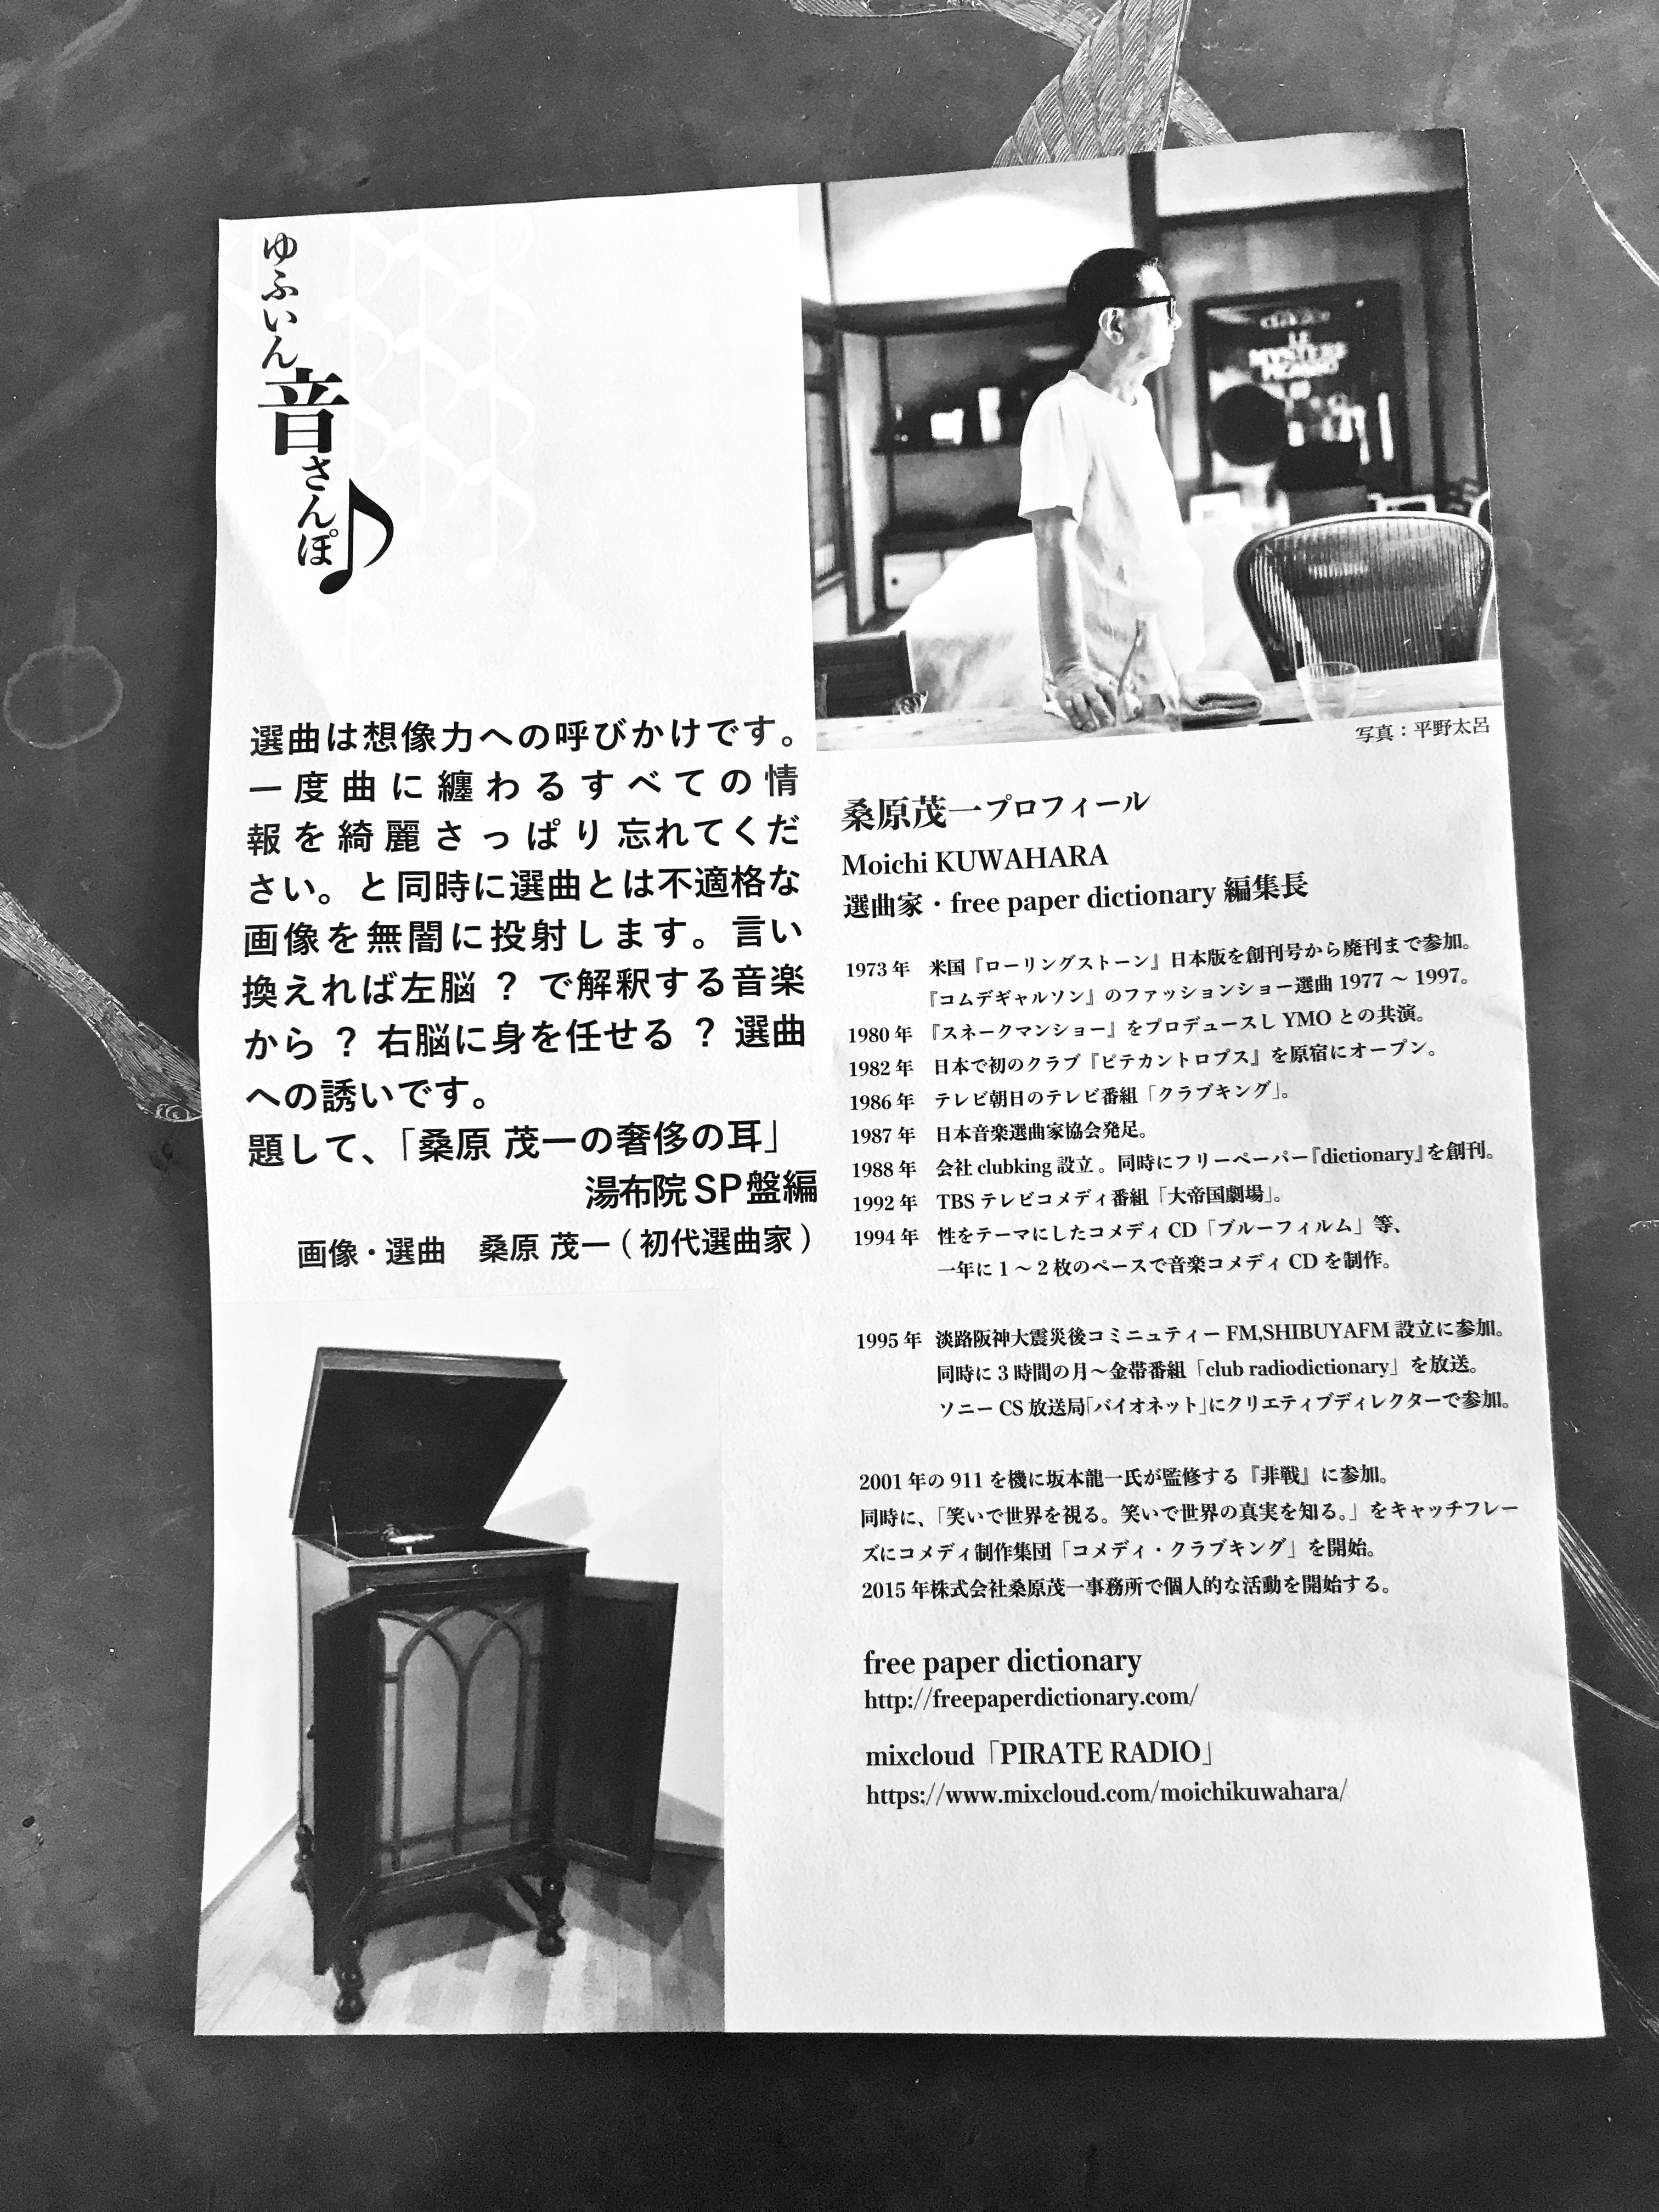 ゆふいん
音
さんぽ
選曲は想像力への呼びかけです。
一度曲に纏わるすべての情
報を綺麗さっぱり忘れてくだ
さい。と同時に選曲とは不適格な
画像を無闇に投射します。言い
換えれば左脳 ? で解釈する音楽
から ? 右脳に身を任せる ? 選曲
への誘いです。
題して、「桑原 茂一の奢侈の耳」
湯布院 SP盤編
画像・選曲　桑原 茂一 ( 初代選曲家 )
LE
写真：平野太呂
桑原茂一プロフィール
Moichi KUWAHARA
選曲家・free paper dictionary 編集長
1973 年　米国『ローリングストーン』日本版を創刊号から廃刊まで参加。
『コムデギャルソン』のファッションショー選曲 1977 〜 1997。
1980 年　『スネークマンショー』をプロデュースし YMO との共演。
1982 年　日本で初のクラブ『ピテカントロプス』を原宿にオープン。
1986 年　テレビ朝日のテレビ番組「クラブキング」。
1987 年　日本音楽選曲家協会発足。
1988 年　会社 clubking 設立 。同時にフリーペーパー『dictionary』を創刊。
1992 年　TBS テレビコメディ番組「大帝国劇場」。
1994 年　性をテーマにしたコメディ CD「ブルーフィルム」等、
一年に 1 〜 2 枚のペースで音楽コメディ CD を制作。
1995 年　淡路阪神大震災後コミニュティー FM,SHIBUYAFM 設立に参加。
同時に 3 時間の月〜金帯番組「club radiodictionary」を放送。
ソニー CS 放送局「バイオネット」にクリエティブディレクターで参加。
2001 年の 911 を機に坂本龍一氏が監修する『非戦』に参加。
同時に、「笑いで世界を視る。笑いで世界の真実を知る。」をキャッチフレー
ズにコメディ制作集団「コメディ・クラブキング」を開始。
2015 年株式会社桑原茂一事務所で個人的な活動を開始する。
free paper dictionary
http://freepaperdictionary.com/
mixcloud「PIRATE RADIO」
https://www.mixcloud.com/moichikuwahara/